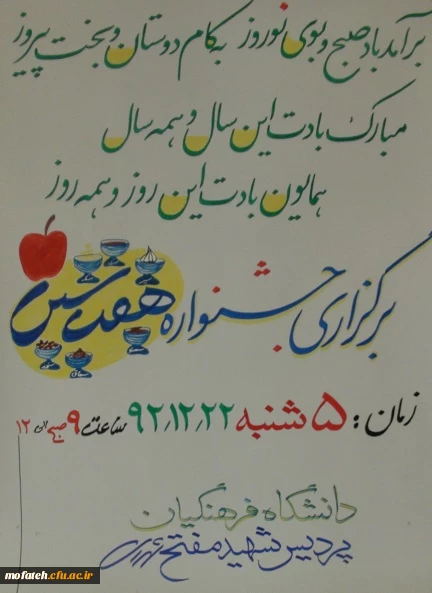 برآمد باد صبح و بوی نوروز
به کام دوستان و بخت پیروز
مبارک بادت این سال و همه سال
همایون بادت این روز و همه روز
برگزاری جشنواره هفت سین
زمان: ۵ شنبه ۹۲٫۱۲٫۲۲ ساعت ۹ صبح الی ۱۲
دانشگاه فرهنگیان
پردیس شهید مفتح
mofateh.cfu.ac.ir